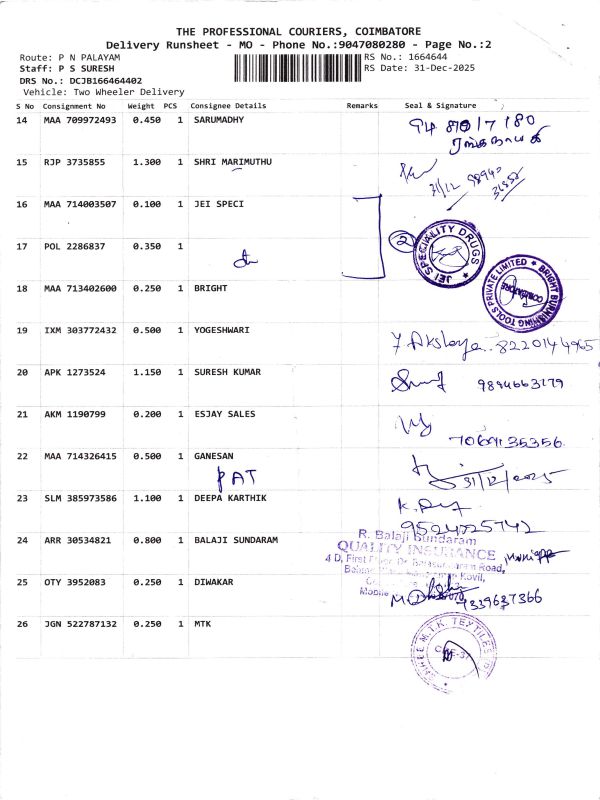 THE PROFESSIONAL COURIERS, COIMBATORE
Delivery Runsheet - MO - Phone No.:9047080280 - Page No.:2
Route: P N PALAYAM
RS No.: 1664644
Staff: P S SURESH
RS Date: 31-Dec-2025
DRS No.: DCJB166464402
Vehicle: Two Wheeler Delivery
S No Consignment No Weight PCS Consignee Details Remarks Seal & Signature
14 MAA 709972493 0.450 1 SARUMADHY
15 RJP 3735855 1.300 1 SHRI MARIMUTHU
31/12
16 MAA 714003507 0.100 1 JEI SPECI
2
JEI SPECIALITY DRUGS
17 POL 2286837 0.350 1
BRIGHT BURNISHING TOOLS PRIVATE LIMITED
COIMBATORE
18 MAA 713402600 0.250 1 BRIGHT
19 IXM 303772432 0.500 1 YOGESHWARI
8220144965
20 APK 1273524 1.150 1 SURESH KUMAR
9894663179
21 AKM 1190799 0.200 1 ESJAY SALES
7069135356
22 MAA 714326415 0.500 1 GANESAN
PAT
31/12/2025
23 SLM 385973586 1.100 1 DEEPA KARTHIK
9524725742
24 ARR 30534821 0.800 1 BALAJI SUNDARAM
R. Balaji Sundaram
QUALITY INSURANCE
4 D, First Floor, Road,
Kovil,
Mobile
25 OTY 3952083 0.250 1 DIWAKAR
7339637366
26 JGN 522787132 0.250 1 MTK
M.T.K. TEXTILES